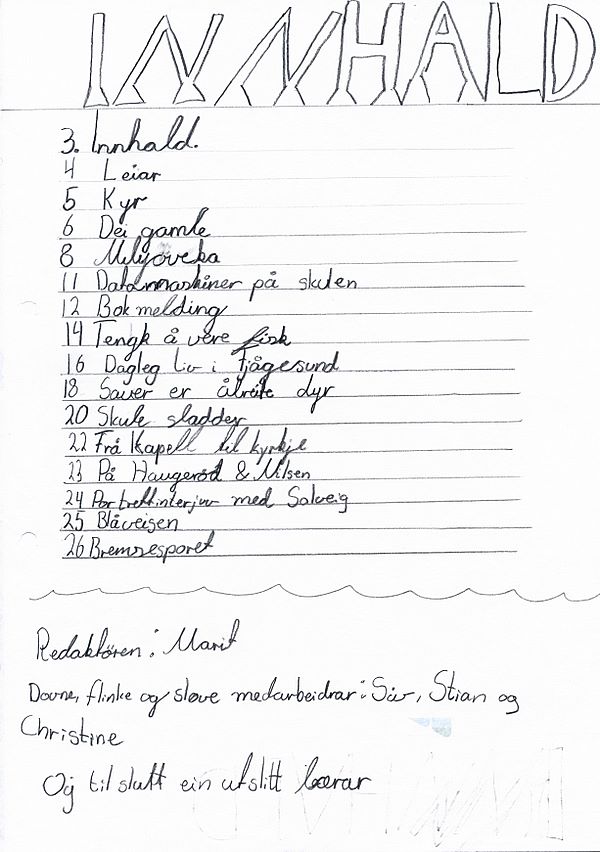 INNHALD
3. Innhald.
4 Leiar
5 Kyr
6 Dei gamle
8 Miljøveka
11 Datamaskiner på skulen
12 Bokmelding
14 Tengk å vere fisk
16 Dagleg liv i Fjågesund
18 Sauer er ålreite dyr
20 Skule sladder
22 Frå Kapell til kyrkje
23 På Haugerød & Nilsen
24 Portrettinterjuv med Solveig
25 Blåveisen
26 Bremsesporet
Redaktören: Marit
Dovne, flinke og sløve medarbeidrar: Siv, Stian og
Christine
Og til slutt ein utslitt lærar